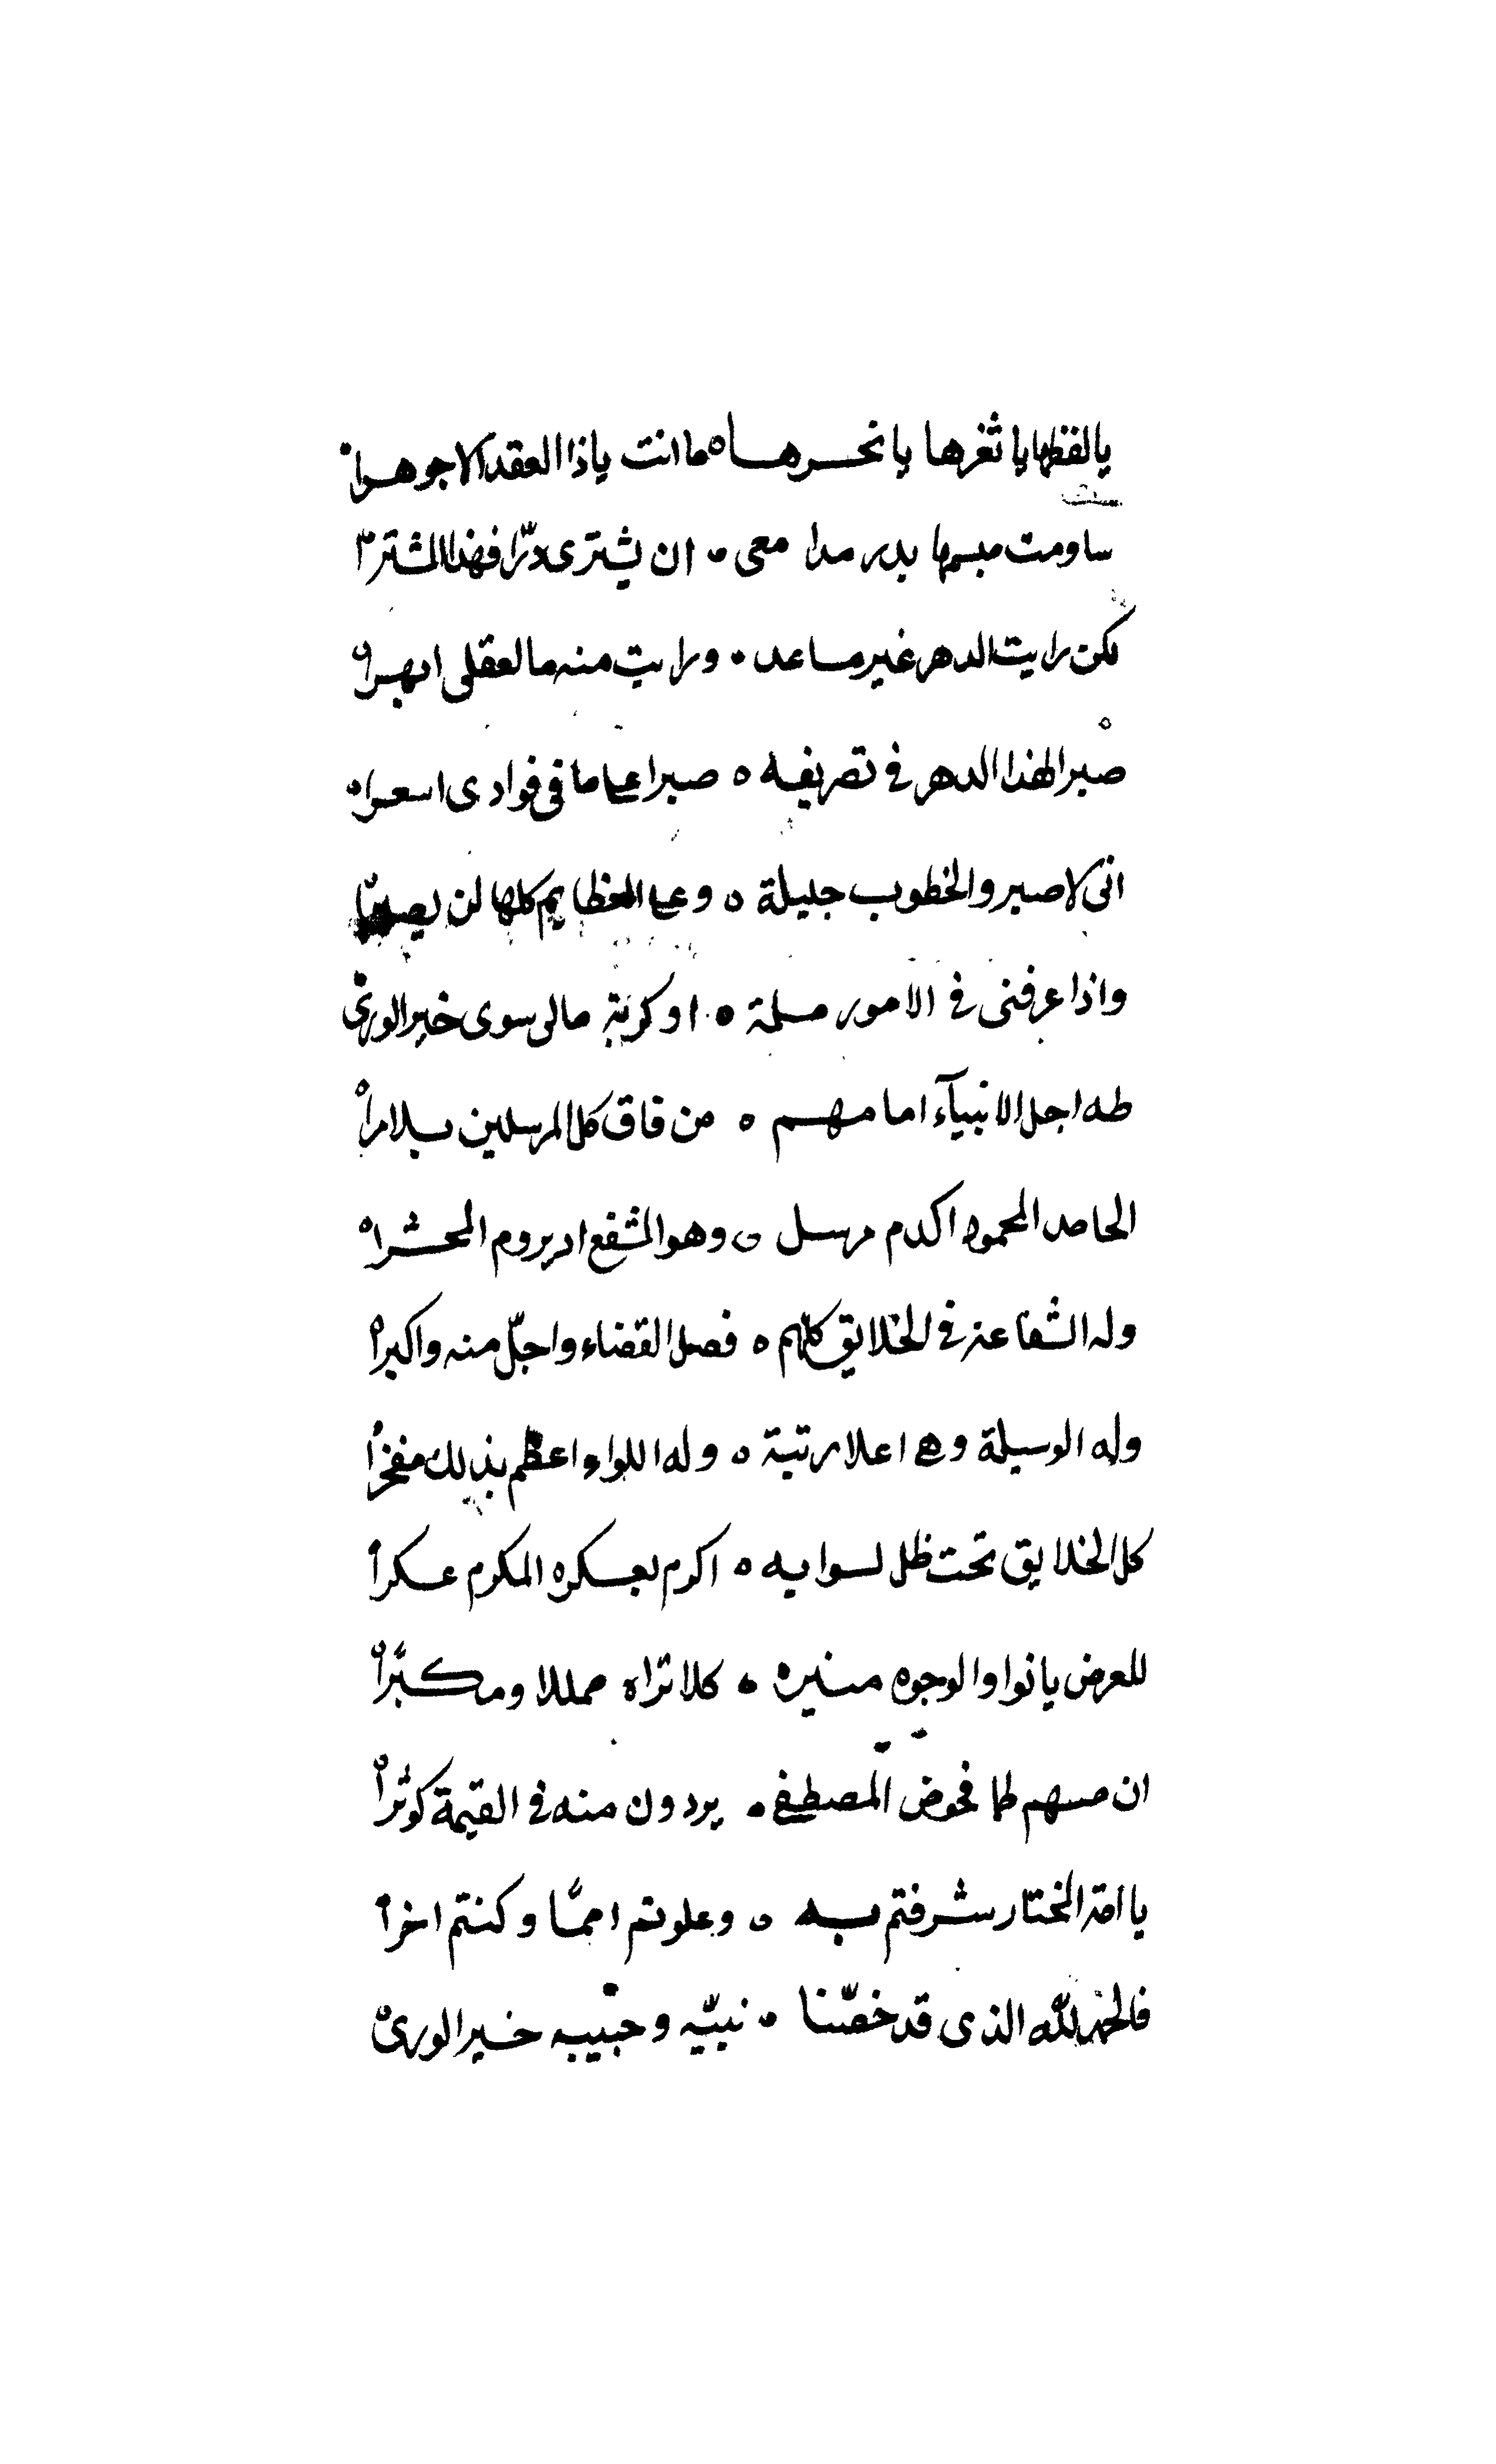 يالفظها يا ثغرها يا نحرها ه ما انت ياذا العقد الا جوهرا
ساومت مبسمها بدر مدا معى ان يشترى درّا فهذا المشترا
لكن رايت الدهر غير مساعد ورايت منه ما لعقلى ابهرا
صبرا لهذا الدهر فى تصريفه ه صبرا على ما فى فوادى اسعرا
انى لاصبر والخطوب جليلة ه وعلى العظايم كلها لن
واذا عرفنى فى الامور مسلمة ه او كربة مالى سوى خير الورى
طه اجل الانبيآء امامهم ه من فاق كل المرسلين بلا مرا
الحامد المحمود اكدم مرسل وهو المشفع اد يروم المحشرا
وله الشفاعة فى الخلايق كلهم ه فصل القضاء واجلّ منه واكبرا
وله الوسيلة وهى اعلا رتبة ه وله اللواء اعظم بذلك مفخرا
كل الخلايق تحت ظل لوايه ه اكرم بعسكره المكرم عسكرا
للعرض ياتوا والوجوه منيره ه كلا تراه مهللا ومكبّرا
ان مسهم ظما فحوض المصطفى يردون منه فى القيمة كوثرا
يا امة المختار شرفتم به وعلوتم امما وكنتم اخرا
فالحمد لله الذى قد خصّنا نبيّه وحبيبه خير الورى